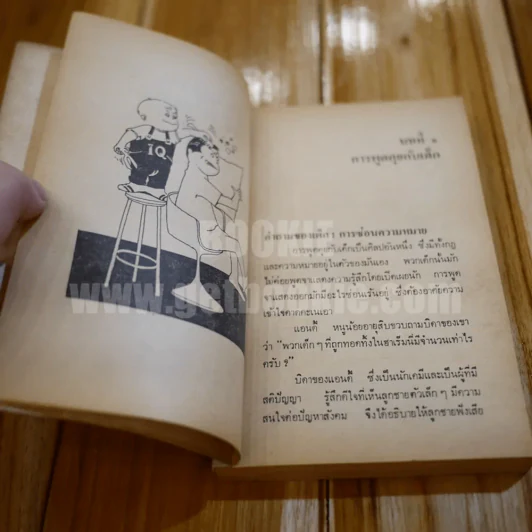 IQ
บทที่ ๑
การพูดคุยกับเด็ก
คำถามของเด็ก : การซ่อนความหมาย
การพูดคุยกับเด็กเป็นศิลปอันหนึ่ง ซึ่งมีทั้งกฎ
และความหมายอยู่ในตัวของมันเอง พวกเด็กนั้นมัก
แสดงความรู้สึกโดยเปิดเผยนัก การพูด
ซึ่งต้องอาศัยความ
แอนดี้ หนูน้อยอายุสิบขวบถามบิดาของเขา
ว่า “พวกเด็ก ๆ ที่ถูกทอดทิ้งในฮาเร็มนี่มีจำนวนเท่าไร
ครับ ?”
บิดาของแอนดี้ ซึ่งเป็นนักเคมีและเป็นผู้ที่มี
สติปัญญา รู้สึกดีใจที่เห็นลูกชายตัวเล็ก ๆ มีความ
สนใจต่อปัญหาสังคม จึงได้อธิบายให้ลูกชายฟังเสีย
BOOKIE